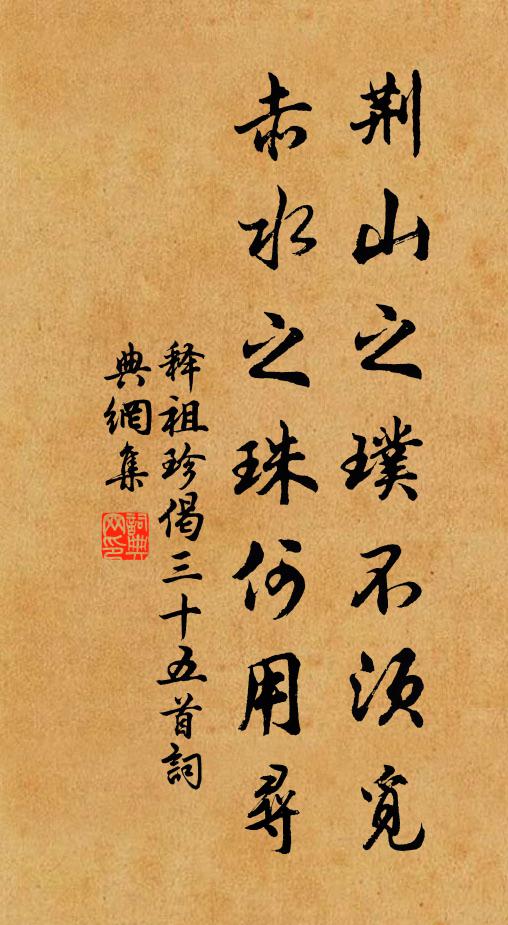 荆山之璞不须覓
赤水之珠何用尋
释祖珍偈三十五首詞
典網集
詞典
网印